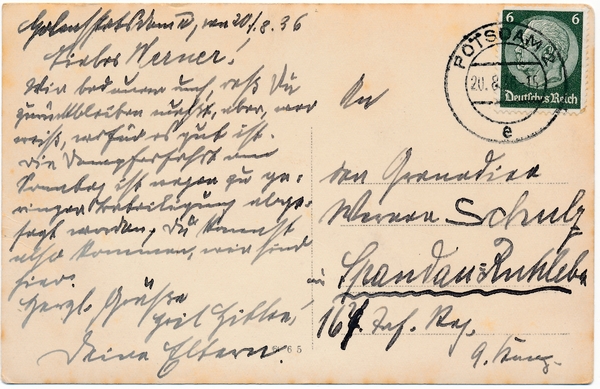 Potsdam, den 20/8.36
Lieber Werner!
Wir bedauern auch, daß Du
zurückbleiben mußt, aber, wer
weiß, wofür es gut ist.
Die Dampferfahrt am
Sonntag ist wegen zu ge-
ringer Beteiligung abge-
sagt worden, Du kannst
also kommen, wir sind
hier.
Herzl. Grüße
Heil Hitler!
Deine Eltern.
An
den Grenadier
Werner Schulz
in Spandau=Ruhleben
Inf. Reg.
9. Komp.
POTSDAM
20.8.
e
6 6
Deutsches Reich
65